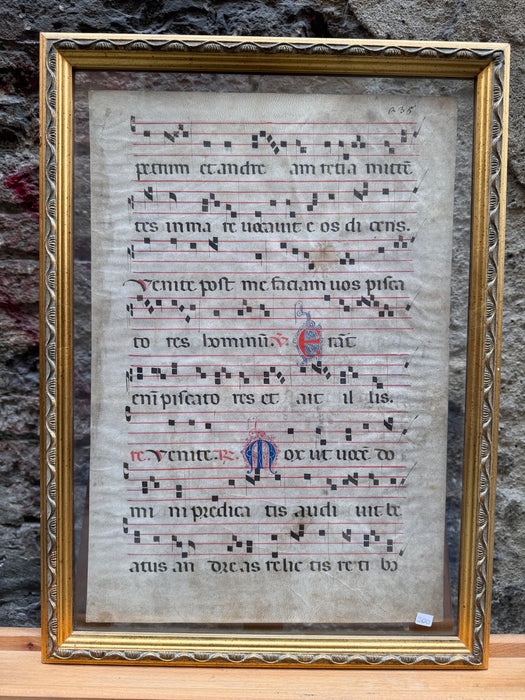 petrum et andre am retia mittē
tes in ma re vocavit e os di cens.
Venite post me faciam vos pisca
to res hominū. ℣. Erāt
enī piscato res et ait il lis.
re. Venite. ℟. Mox ut vocē do
mi ni predica tis audi vit be
atus an dreas relic tis re ti b